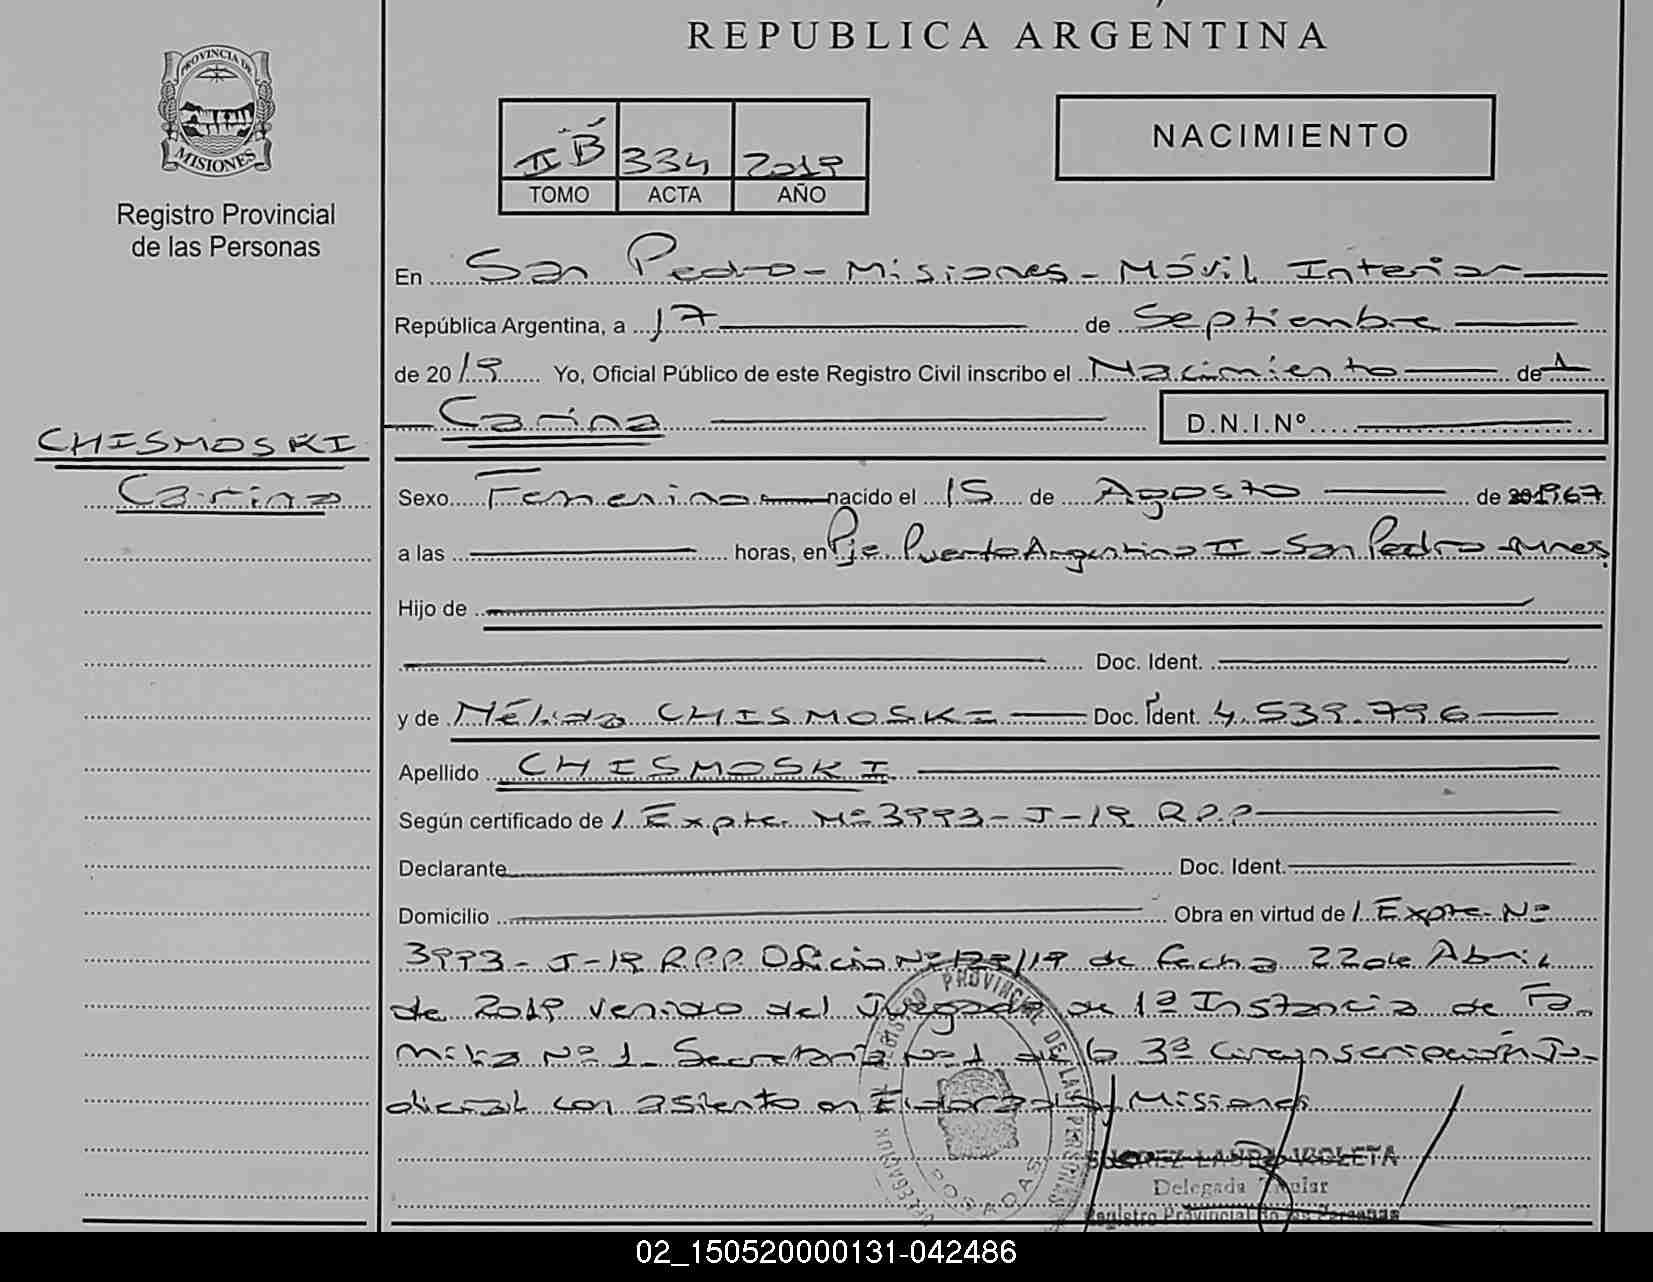 REPUBLICA ARGENTINA
PROVINCIA DE
MISIONES
Registro Provincial
de las Personas
II B 334 2019
TOMO ACTA AÑO
NACIMIENTO
En San Pedro - Misiones - Móvil Interior
República Argentina, a 17 de Septiembre
de 2019 Yo, Oficial Público de este Registro Civil inscribo el Nacimiento de
Carina D.N.I.Nº
CHISMOSKI
Carina
Sexo Femenino nacido el 15 de Agosto de 1967
a las horas, en Pje. Puerto Argentino II - San Pedro - Mnes.
Hijo de
Doc. Ident.
y de Nélida CHISMOSKI Doc. Ident. 4.539.796
Apellido CHISMOSKI
Según certificado de Expte. Nº 3993 - J - 19 R.P.P
Declarante Doc. Ident.
Domicilio Obra en virtud de Expte. Nº
3993 - J - 19 R.P.P Oficio Nº /19 de fecha 22 de Abril
de 2019 venido del Juzgado de 1ª Instancia de Fa-
milia Nº 1 - Secretaría Nº 1 de la 3ª Circunscripción Ju-
dicial con asiento en Eldorado, Misiones
REGISTRO PROVINCIAL DE LAS PERSONAS
DELEGACION
POSADAS
SUAREZ VIOLETA
Delegada Titular
Registro Provincial de las Personas
02_150520000131-042486